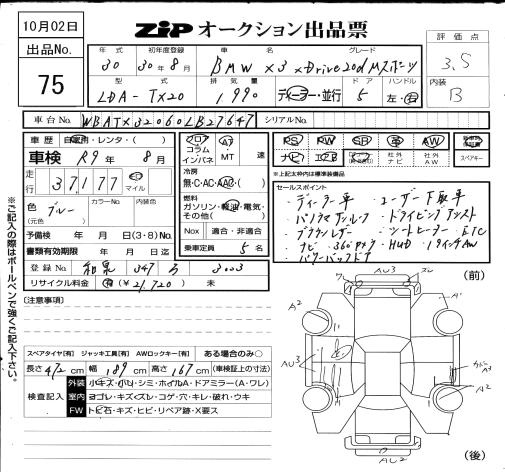 10月02日
ZIP オークション出品票
出品No.
75
年式 初年度登録 車名 グレード
30 30年8月 BMW X3 xDrive20d Mスポーツ
型式 排気量 ドア ハンドル
LDA-TX20 1,990 ディーラー・並行 5 左・右
評価点
3.5
内装
B
車台No. WBATX32060LB27647 シリアルNo.
車歴 自家用・レンタ・( )
車検 R9年8月
走行 37,177 km マイル
色 ブルー カラーNo. 内装色
(元色)
予備検 年 月 日(3・8)No.
書類有効期限 年 月 日迄
登録No. 和泉 347 3003
リサイクル料金 有(¥21,720) 未
フロア AT
コラム
インパネ MT 速
冷房
無・C・AC・AAC・( )
燃料
ガソリン・軽油・電気・
その他( )
Nox 適合・非適合
乗車定員 5名
PS PW SR 革 AW
ナビ エアB 社外ナビ 社外AW スペアキー
※上記太枠内は標準装備品
セールスポイント
・ディーラー車 ・ユーザー下取車
・パノラマサンルーフ ・ドライビングアシスト
・ブラウンレザー ・シートヒーター ETC
・ナビ 360°カメラ ・HUD ・19インチAW
・パワーバックドア
(注意事項)
スペアタイヤ[有] ジャッキ工具[有] AWロックキー[有] ある場合のみ○
長さ472cm 幅189cm 高さ167cm (車検証上の寸法)
検査記入
外装 小キズ・小凹・シミ・ホイルA・ドアミラー(A・ワレ)
室内 ヨゴレ・キズ・スレ・コゲ・穴・キレ・破れ・ウキ
FW トビ石・キズ・ヒビ・リペア跡・X要ス
※ご記入の際はボールペンで強くご記入下さい。
(前)
AU3
A2
A1
AU3
A2
AU2
(後)